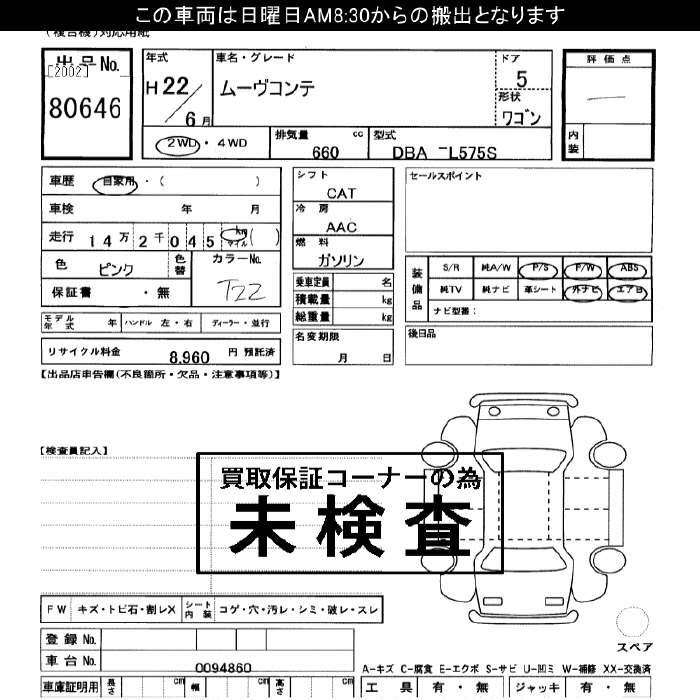 この車両は日曜日AM8:30からの搬出となります
(複合機)対応用紙
出品No.
[2002]
80646
年式
H 22 / 6月
車名・グレード
ムーヴコンテ
ドア
5
形状
ワゴン
評価点
内装
2WD・4WD
排気量 660 cc
型式 DBA -L575S
車歴 自家用・( )
車検 年 月
走行 14万2千045 km マイル ( )
色 ピンク
色替
カラーNo.
T22
保証書 ・ 無
シフト
CAT
冷房
AAC
燃料
ガソリン
乗車定員 名
積載量 kg
総重量 kg
セールスポイント
装備品
S/R 純A/W P/S P/W ABS
純TV 純ナビ 革シート 外ナビ エアB
ナビ型番:
モデル年式 年 ハンドル 左・右 ディーラー・並行
リサイクル料金 8,960 円 預託済
名変期限
月 日
後日品
【出品店申告欄(不良箇所・欠品・注意事項等)】
【検査員記入】
買取保証コーナーの為
未検査
FW キズ・トビ石・割レX シート内装 コゲ・穴・汚レ・シミ・破レ・スレ
登録No.
車台No. 0094860
スペア
A-キズ C-腐食 E-エクボ S-サビ U-凹ミ W-補修 XX-交換済
車庫証明用 長さ cm 幅 cm 高さ cm
工具 有・無 ジャッキ 有・無